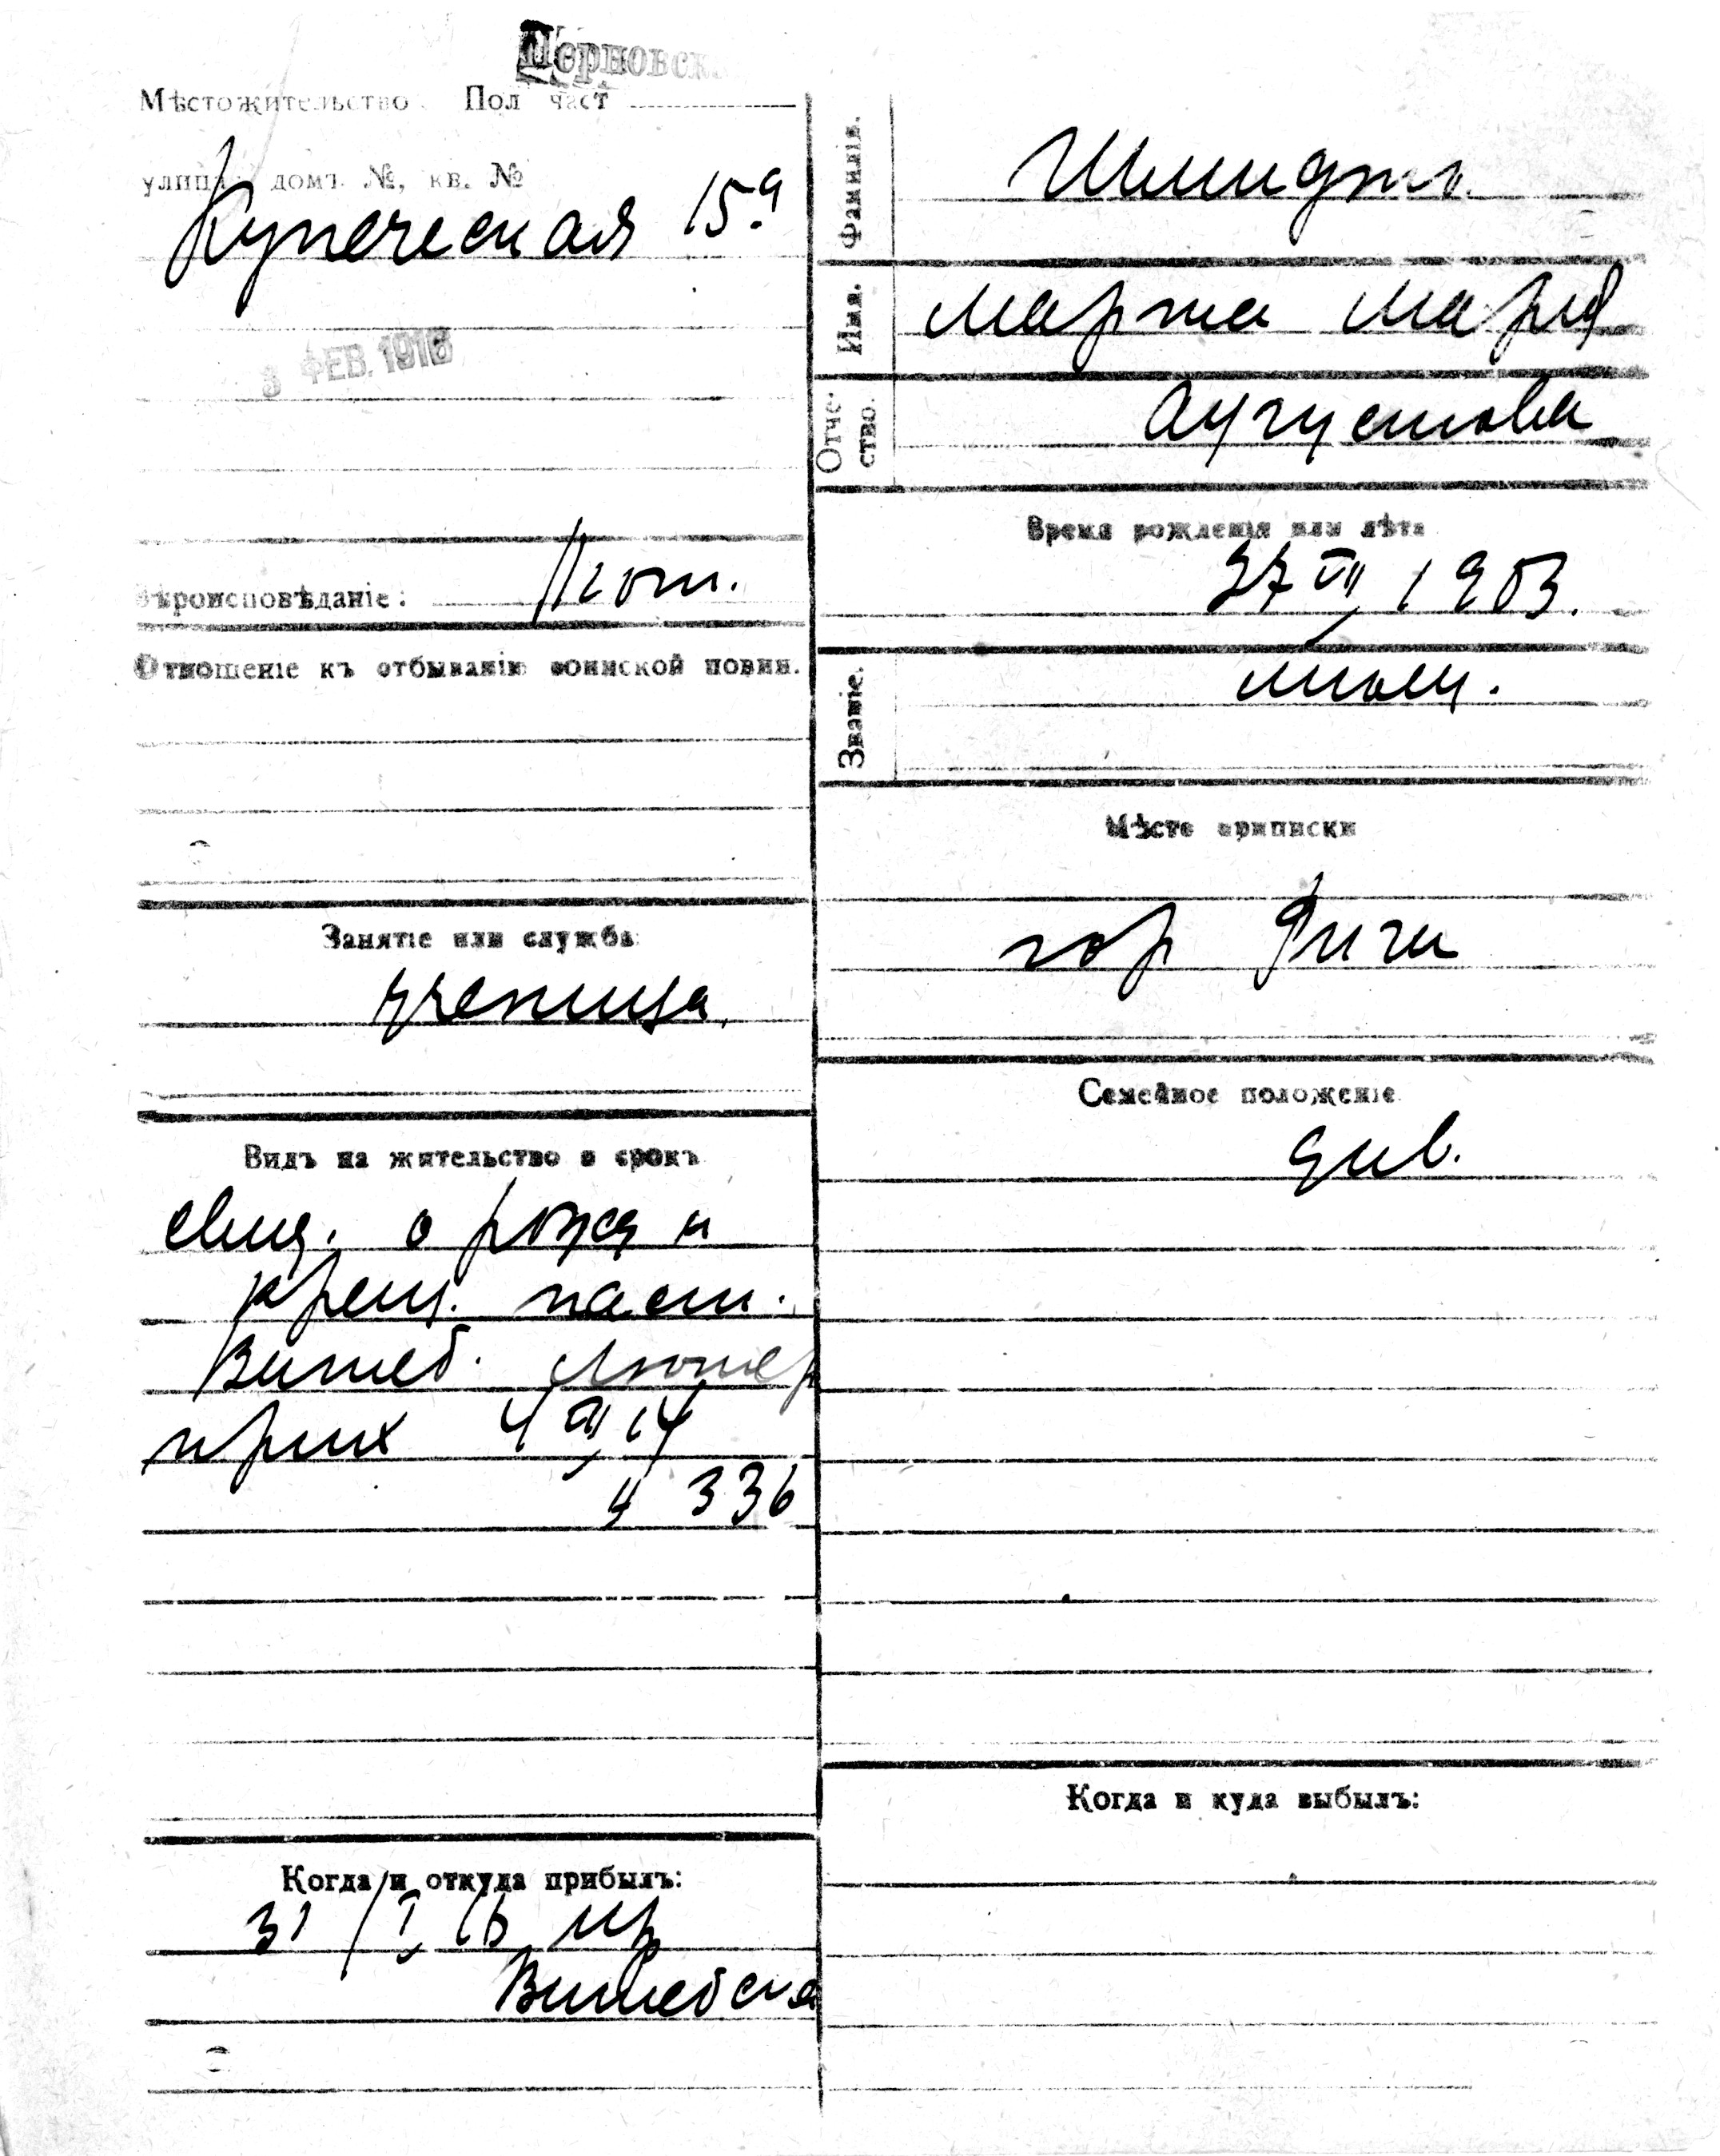 Перновск
Мѣстожительство. Пол част
улица, домъ №, кв. №
Купеческая 15а
3 ФЕВ. 1916
Вѣроисповѣданіе: Лют.
Отношеніе къ отбыванію воинской повин.
Занятіе или служба
ученица.
Видъ на жительство и срокъ
свид. о рожд и
крещ. паст.
Витеб. Лютер
прих 4 14
№ 336
Когда и откуда прибылъ:
31/I 16 изъ
Витебска
Фамилія. Шмидтъ
Имя. Марта Мария
Отчество. Аугустова
Время рожденія или лѣта
27 VII 1903.
Званіе. мѣщ.
Мѣсто приписки
гор Риги
Семейное положеніе
дѣв.
Когда и куда выбылъ: